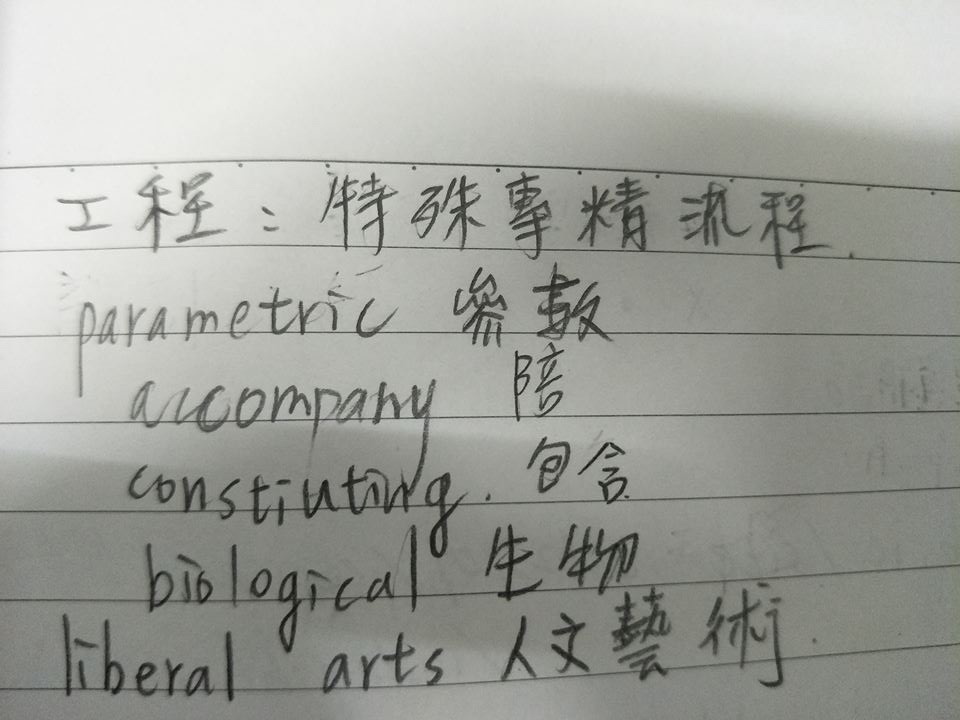 工程：特殊專精流程.
parametric 參數
accompany 陪
constiuting. 包含
biological 生物
liberal arts 人文藝術.